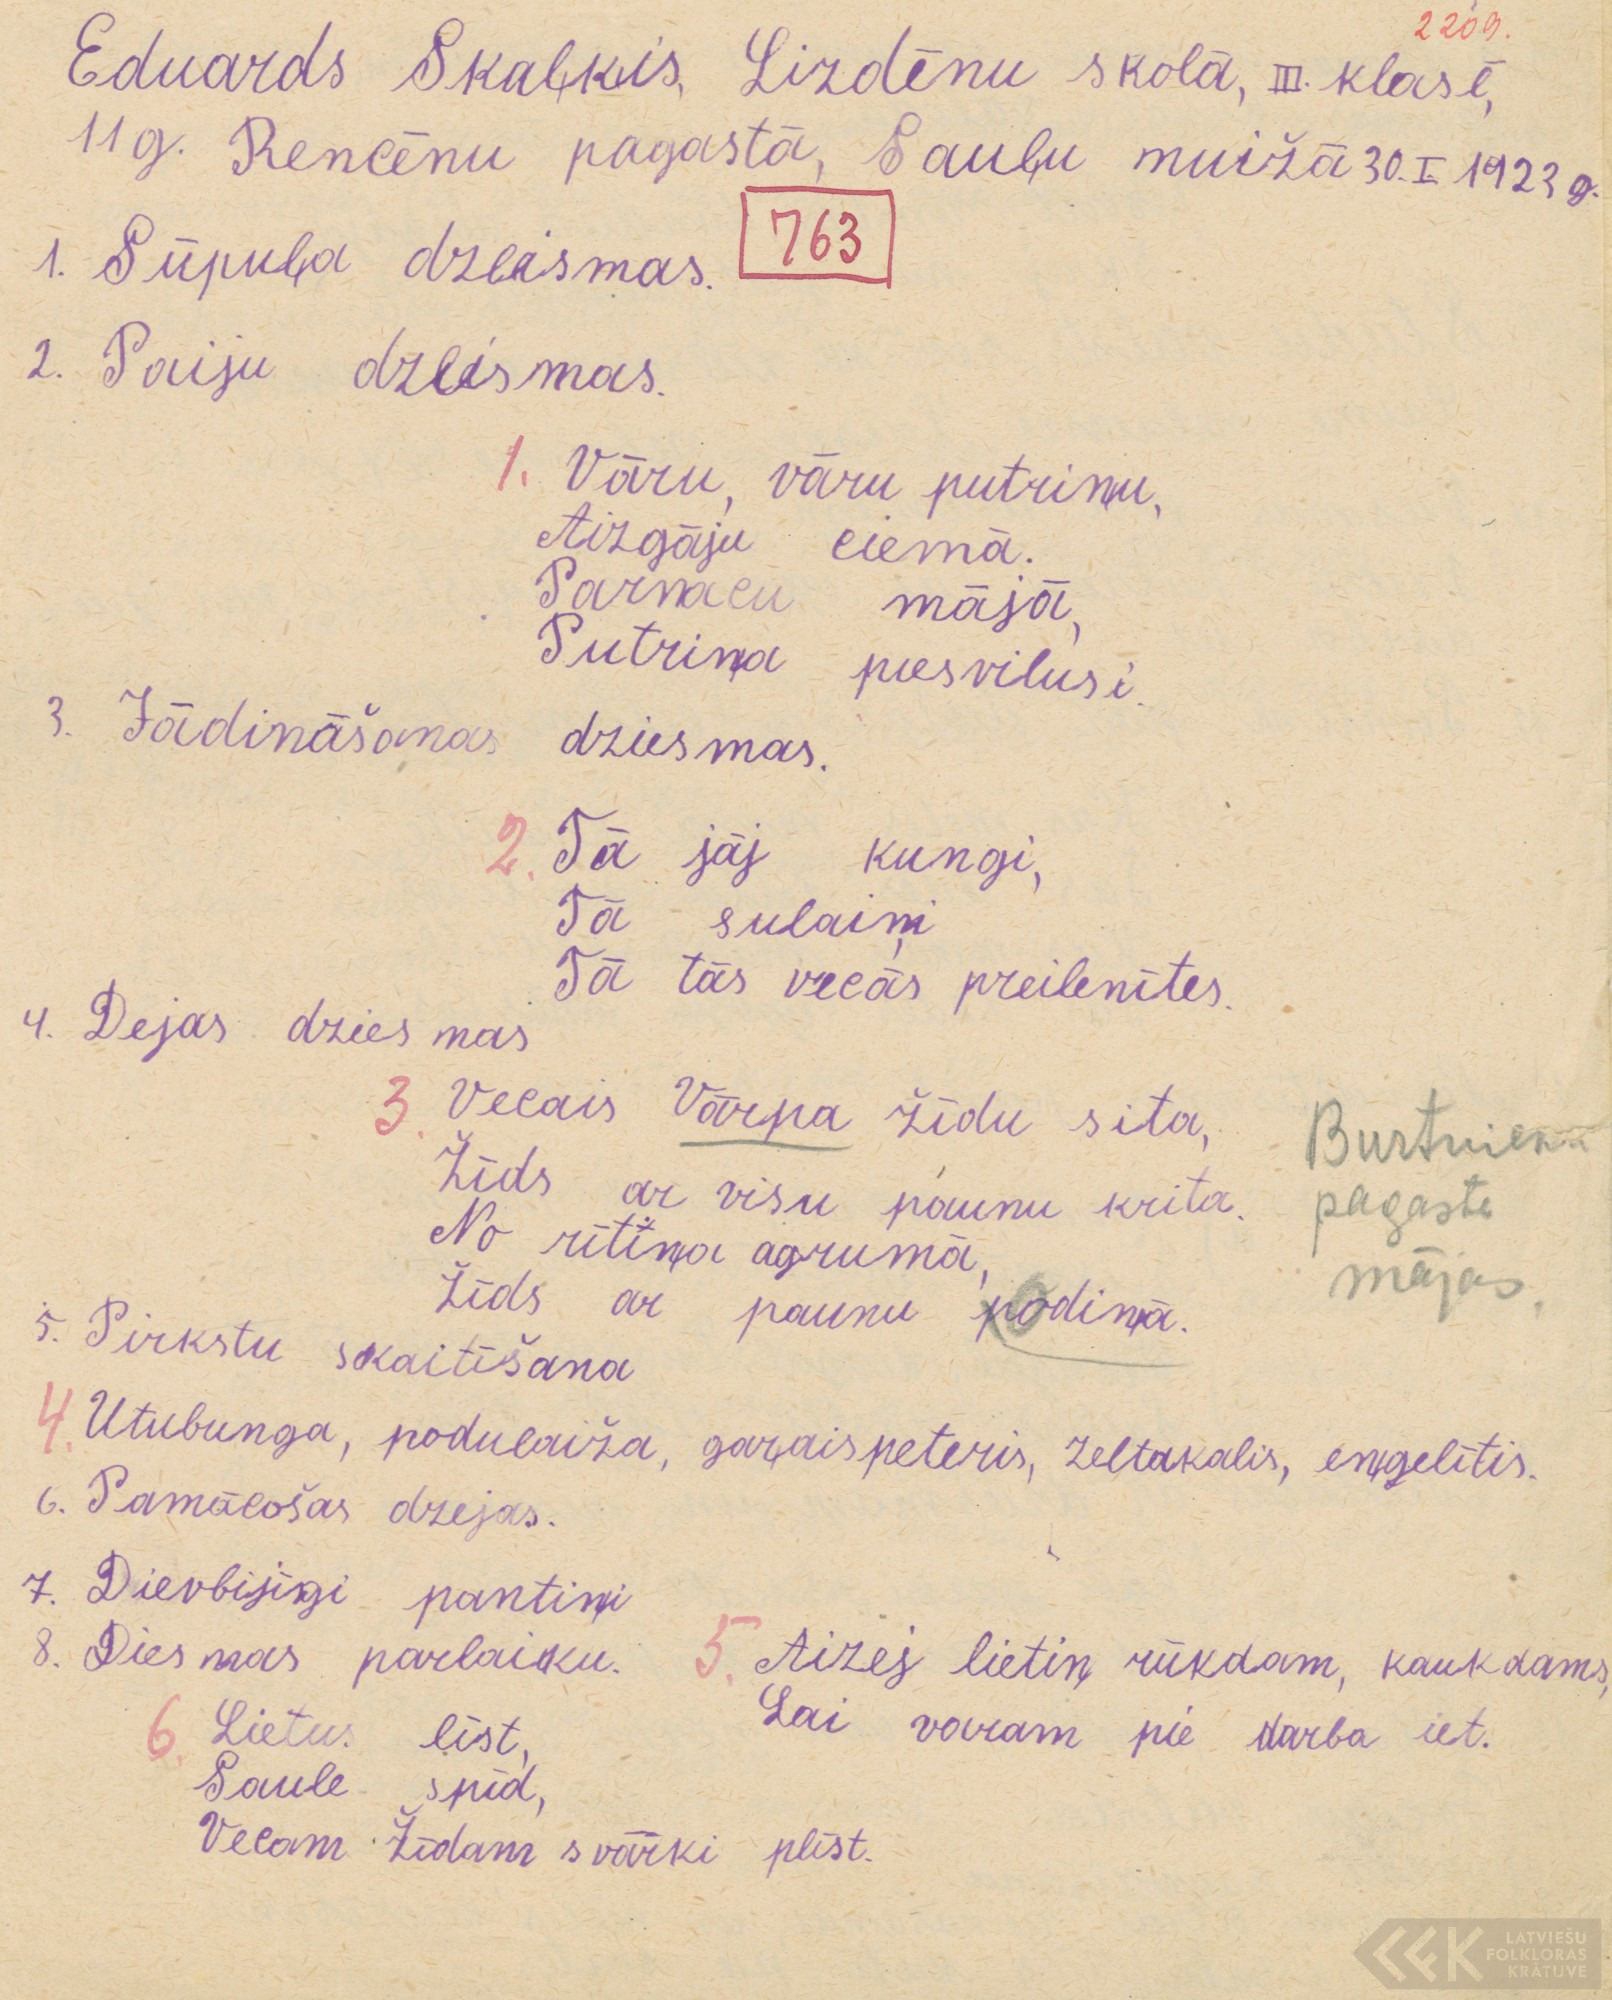 2209.
Eduards Skaļķis, Lizdēnu skolā, III. klasē,
11 g. Rencēnu pagastā, Sauļu muižā 30. I 1923 g.
763
1. Sūpuļa dzeismas.
2. Paiju dzeismas.
1. Vāru, vāru putriņu,
Aizgāju ciemā.
Parnacu mājā,
Putriņa piesvilusi.
3. Jādināšanas dziesmas.
2. Tā jāj kungi,
Tā sulaiņi
Tā tās vecās preilenītes.
4. Dejas dziesmas
3. Vecais Vārpa žīdu sita,
Žīds ar visu paunu krita.
No rītiņa agrumā,
Žīds ar paunu podiņā.
Burtnieku
pagasta
mājas.
5. Pirkstu skaitīšana
4. Utubunga, poducaiža, gaŗais peteris, zeltakalis, eņģelītis.
6. Pamācošas dzejas.
7. Dievbijīgi pantiņi
8. Diesmas parlaiku.
5. Aizej lietiņ rūkdam, kaukdams,
Lai varam pie darba iet.
6. Lietus līst,
Saule spīd,
Vecam Žīdam svārki plīst.
LATVIEŠU
FOLKLORAS
KRĀTUVE